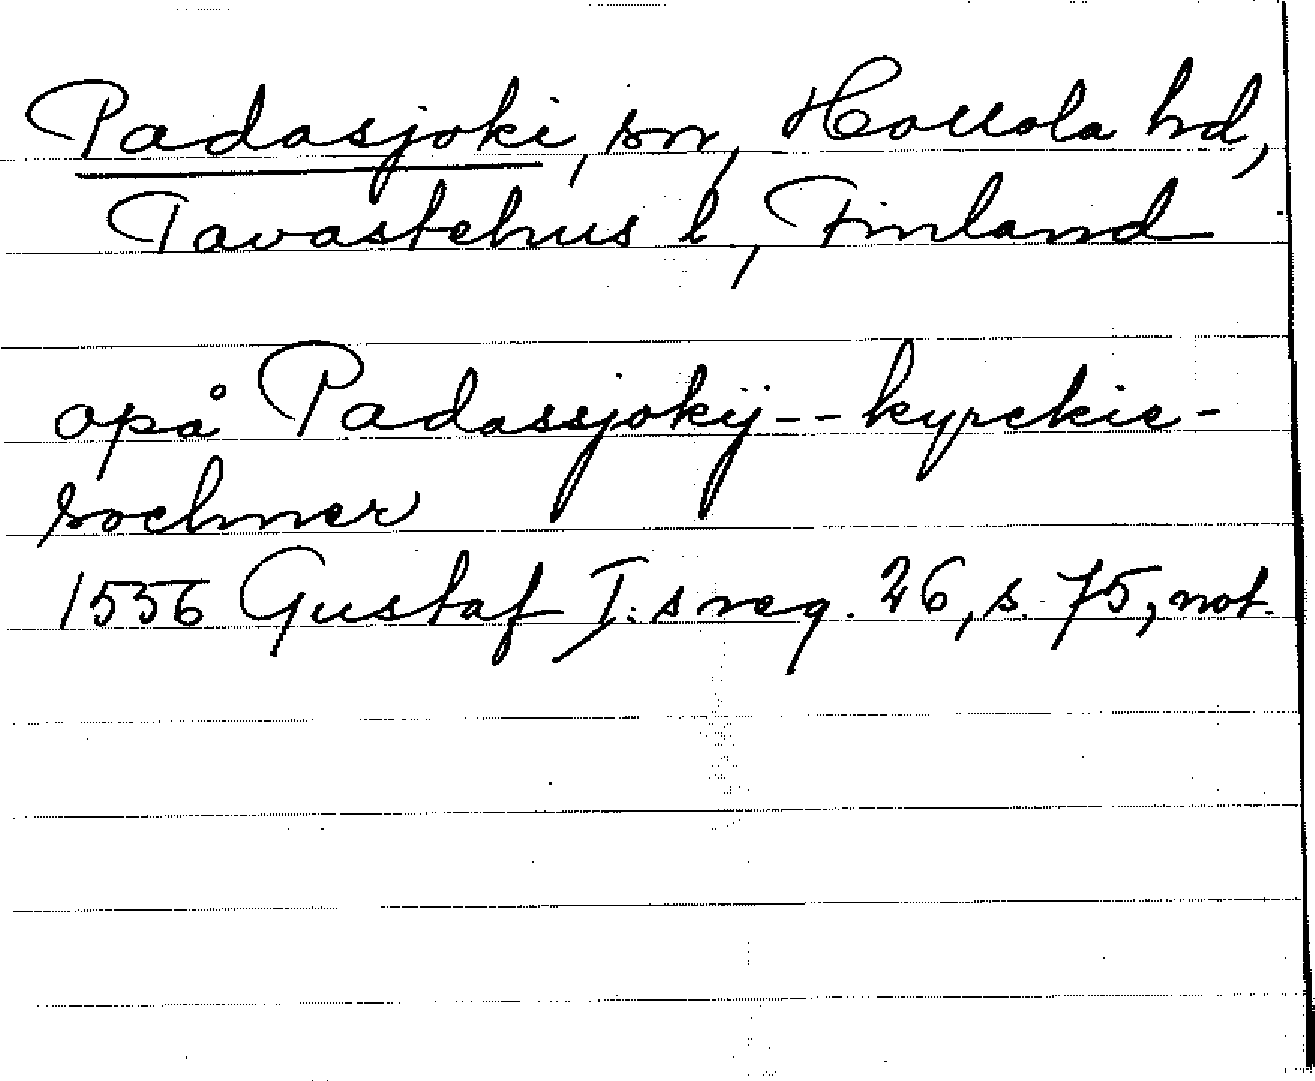 Padasjoki, sn, Hollola hd,
Tavastehus l., Finland
opå Padassjokij-- kyrckie-
sochner
1556 Gustaf I:s reg. 26, s. 75, not.